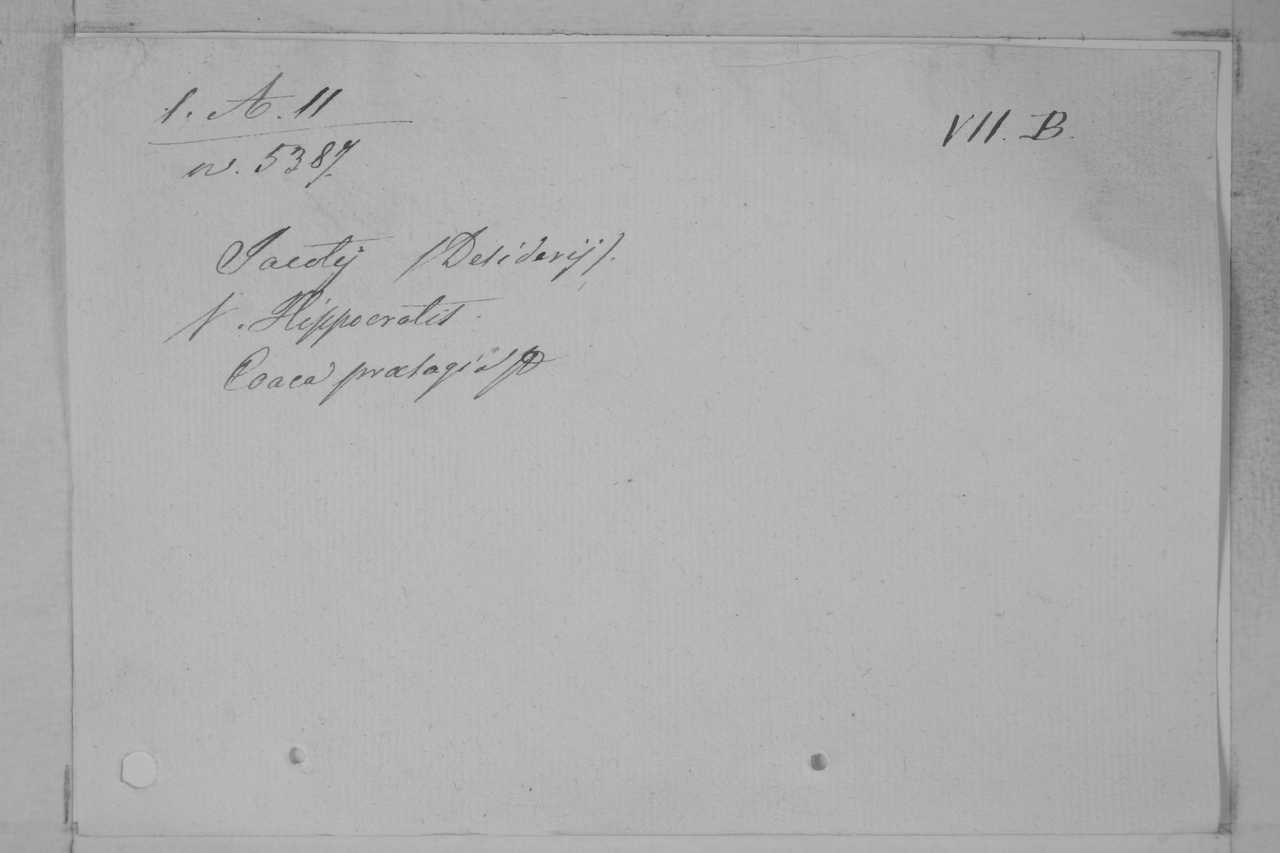 1. A. 11
VII. B.
n. 5387.
Jacotij (Desiderij).
V. Hippocratis.
Coaca præsagia